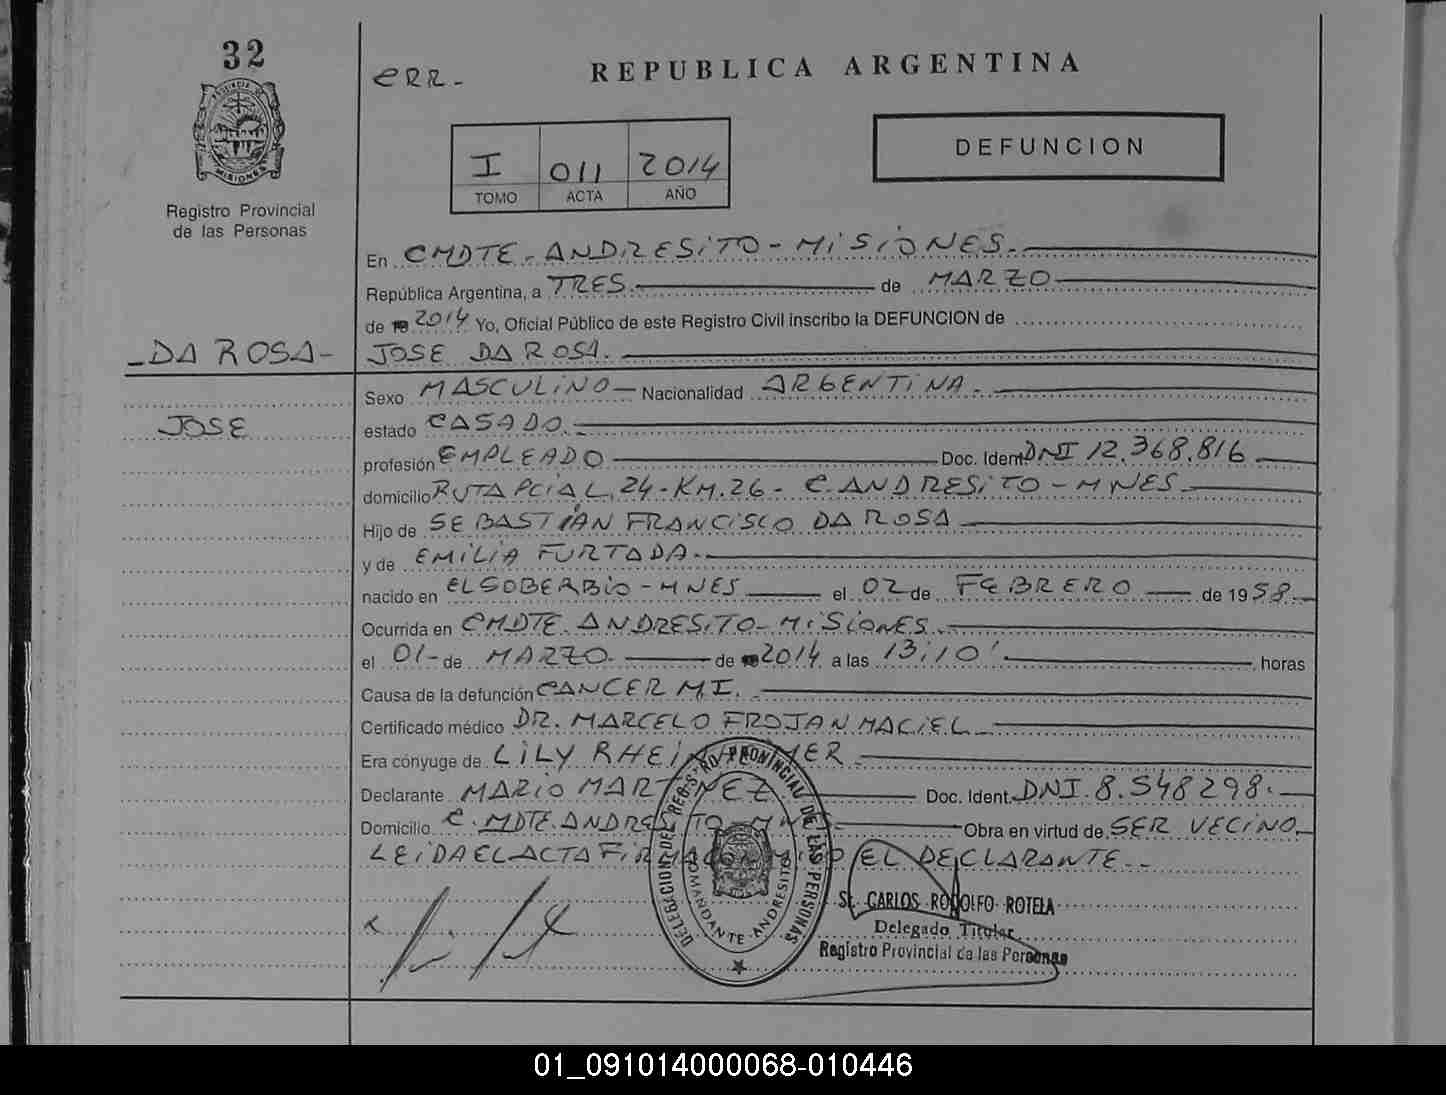 32
ERR-
REPUBLICA ARGENTINA
PROVINCIA DE MISIONES
I 011 2014
TOMO ACTA AÑO
DEFUNCION
Registro Provincial
de las Personas
En CMDTE-ANDRESITO-MISIONES.
República Argentina, a TRES. de MARZO
de 2014 Yo, Oficial Público de este Registro Civil inscribo la DEFUNCION de
-DA ROSA- JOSE DA ROSA.
Sexo MASCULINO- Nacionalidad ARGENTINA.
JOSE estado CASADO.
profesión EMPLEADO Doc. Ident. DNI 12.368.816
domicilio RUTA PCIAL. 24-KM.26- C.ANDRESITO-MNES-
Hijo de SEBASTIAN FRANCISCO DA ROSA
y de EMILIA FURTADA.
nacido en EL SOBERBIO-MNES el 02 de FEBRERO de 1958.
Ocurrida en CMDTE. ANDRESITO-MISIONES.
el 01- de MARZO. de 2014 a las 13:10' horas
Causa de la defunción CANCER M.I.
Certificado médico DR. MARCELO FROJAN MACIEL.
Era cónyuge de LILY
Declarante MARIO MARTINEZ Doc. Ident. DNI.8.548298.
Domicilio C.MDTE.ANDRESITO-MNES- Obra en virtud de SER VECINO
LEIDA EL ACTA EL DECLARANTE..
DELEGACION DEL REGISTRO PROVINCIAL DE LAS PERSONAS
COMANDANTE ANDRESITO
Sr. CARLOS RODOLFO ROTELA
Delegado Titular
Registro Provincial de las Personas
01_091014000068-010446